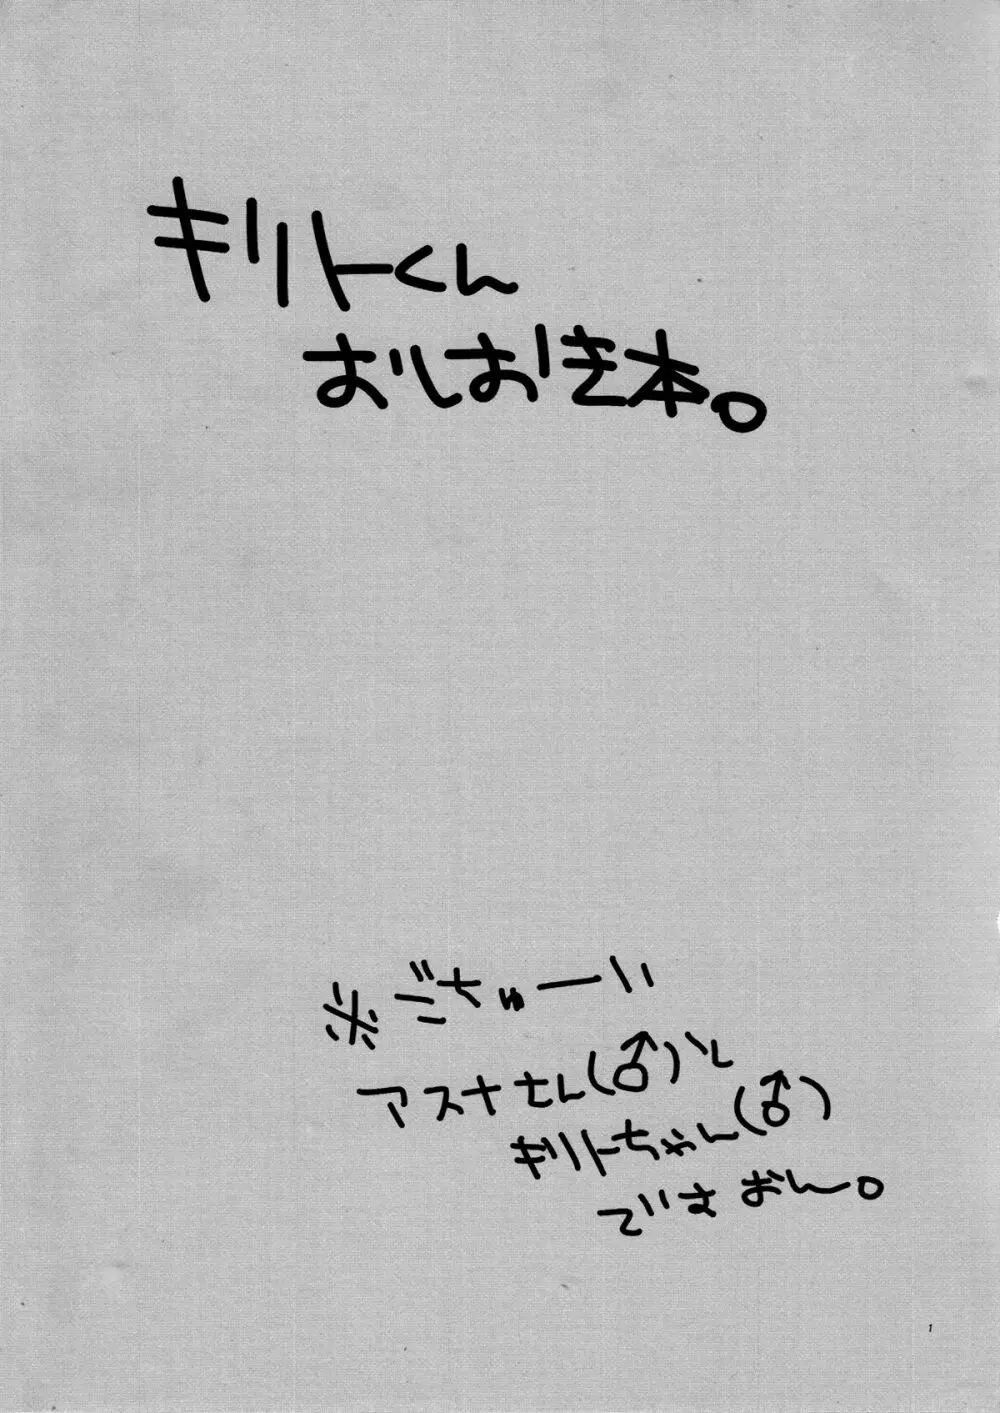 キリトくん
おしおき本。
※ごちゅーい
アスナさん(♂)と
キリトちゃん(♂)
1